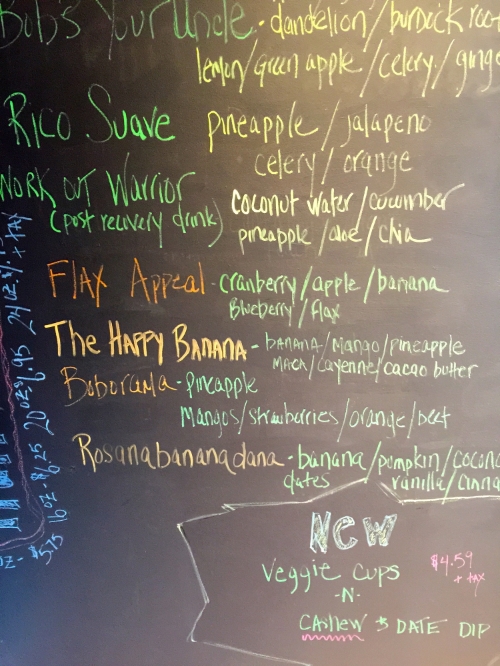 Bob's Your Uncle - dandelion/burdock root
lemon/green apple/celery/ginge
Rico Suave pineapple/jalapeno
celery/orange
Work out Warrior coconut water/cucumber
(post recovery drink) pineapple/aloe/chia
Flax Appeal - cranberry/apple/banana
Blueberry/flax
The Happy Banana - banana/Mango/pineapple
Maca/Cayenne/cacao butter
Boborama - pineapple
Mangos/strawberries/orange/beet
Rosanabananadana - banana/pumpkin/cocon
dates vanilla/cinna
New
Veggie Cups
-N-
Cashew & DATE DIP
$4.59
+ tax
$5.75 16 oz - $6.25 20 oz 24 oz + tax